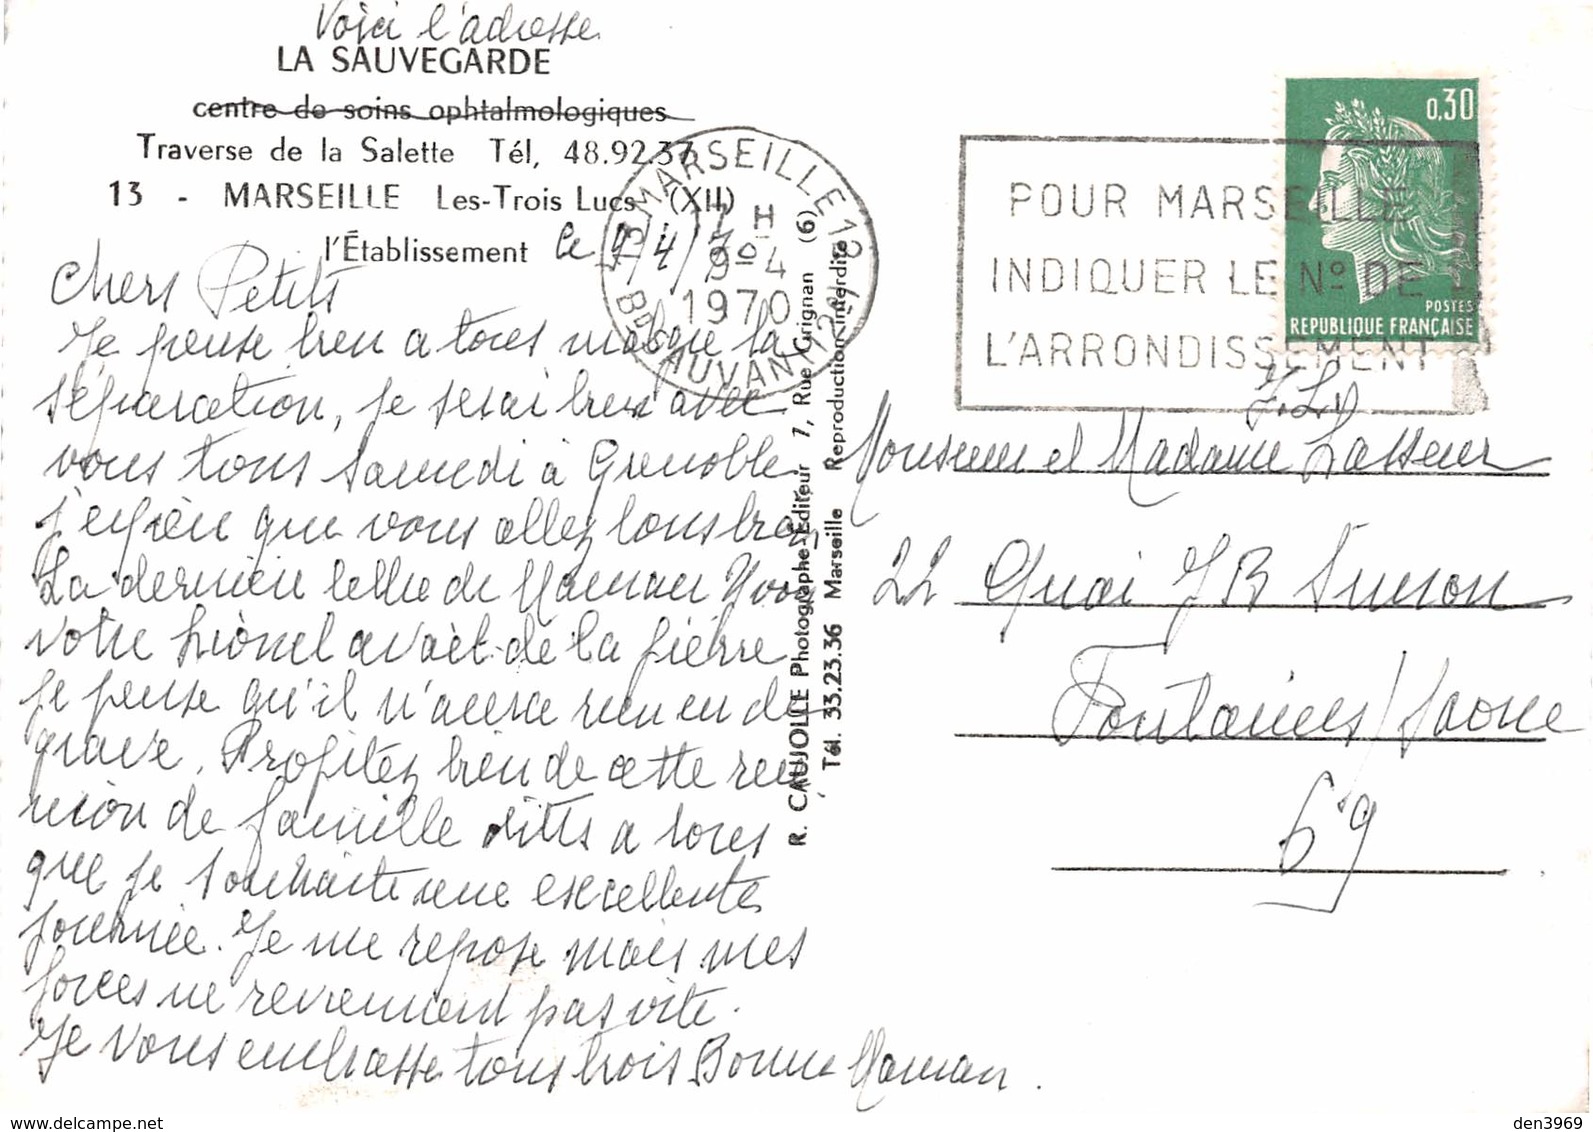 Voici l'adresse
LA SAUVEGARDE
centre de soins ophtalmologiques
Traverse de la Salette Tél, 48.92.37
13 - MARSEILLE Les-Trois Lucs (XII)
l'Établissement le 9/4/70
Chers Petits
Je pense bien a tous malgré la
séparation, je serai bien avec
vous tous Samedi à Grenoble
j'espère que vous allez tous bien,
La dernière lettre de Maman Yvon
votre Lionel avait de la fièvre
je pense qu'il n'aura rien eu de
grave. Profitez bien de cette reu
nion de famille dites a tous
que je souhaite une excellente
journée. Je me repose mais mes
forces ne reviennent pas vite.
Je vous embrasse tous trois Bonne Maman.
13 MARSEILLE 12
H
9-4
1970
BD CAUVAN (12E)
R. CAUJOLLE Photographe-Editeur 7, Rue Grignan (6)
Tél. 33.23.36 Marseille Reproduction interdite
POUR MARSEILLE
INDIQUER LE No DE
L'ARRONDISSEMENT
0,30
POSTES
REPUBLIQUE FRANÇAISE
Monsieur et Madame Lasseur
22 Quai JB Simon
Fontaines/Saone
69
den3969